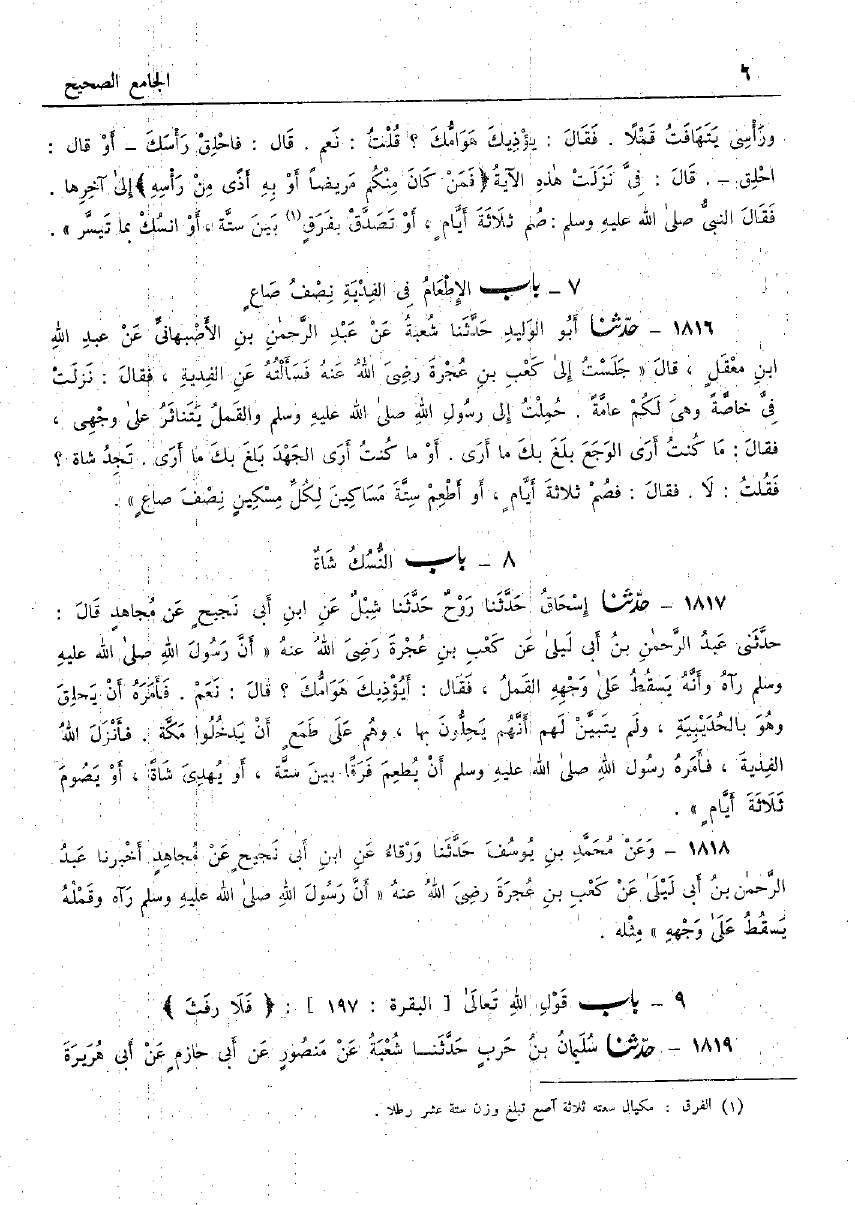 ٦ الجامع الصحيح
ورَأْسِى يَتَهَافَتُ قَمْلًا . فَقَالَ : يؤْذِيكَ هَوَامُّكَ ؟ قُلْتُ : نَعم . قَال : فاحْلِقْ رَأْسَكَ – أَوْ قال :
احْلِق – . قَالَ : فِىَّ نَزَلَتْ هٰذِهِ الآيةُ ﴿ فَمَنْ كَانَ مِنْكُم مَرِيضاً أَوْ بِهِ أَذًى مِنْ رَأْسِهِ ﴾ إِلىٰ آخِرِها .
فَقَالَ النبىُّ صلىٰ الله عليهِ وسلم : صُم ثلَاثَةَ أَيَّامٍ ، أَوْ تَصَدَّقْ بِفَرَقٍ (١) بَينَ ستةٍ ، أَوْ انسُكْ بما تَيسَّر » .
٧ – باب الإِطْعَامُ فِى الفِدْيَةِ نِصْفُ صَاعٍ
١٨١٦ – حدّثنا أَبُو الوَليدِ حَدَّثَنا شُعبةُ عَنْ عَبْدِ الرَّحمٰنِ بنِ الأَصْبهانىِّ عَنْ عبدِ اللهِ
ابنِ معْقَلٍ ، قالَ « جَلَسْتُ إِلىٰ كَعْبِ بنِ عُجْرةَ رضِىَ اللهُ عَنهُ فَسَأَلْتُهُ عَنِ الفِديةِ ، فقالَ : نَزلَتْ
فِىَّ خاصَّةً وهىَ لَكُمْ عامَّةً . حُمِلْتُ إِلى رسُولِ اللهِ صلىٰ الله عليهِ وسلم والقَملُ يَتَناثَرُ علىٰ وجْهِى ،
فقالَ : مَا كُنتُ أَرَى الوَجَعَ بلَغَ بكَ ما أَرَى . أَوْ ما كُنتُ أَرَى الجَهْدَ بَلَغَ بكَ ما أَرَى . تَجدُ شاة ؟
فَقُلتُ : لَا . فقالَ : فصُمْ ثلاثةَ أَيَّامٍ ، أَو أَطْعِمْ سِتَّةَ مَسَاكينَ لِكُلِّ مِسْكِينٍ نِصْفَ صاعٍ » .
٨ – باب النُّسكُ شَاةٌ
١٨١٧ – حدّثنا إِسْحَاقُ حَدَّثَنَا رَوْحٌ حَدَّثَنا شِبْلٌ عَنِ ابنِ أَبى نَجيحٍ عَن مُجاهدٍ قَالَ :
حدَّثَنى عَبدُ الرَّحمٰنِ بنُ أَبى لَيلىٰ عَن كَعْبِ بنِ عُجْرةَ رَضِىَ اللهُ عنهُ « أَنَّ رَسُولَ اللهِ صلىٰ الله عليهِ
وسلم رآهُ وأَنَّهُ يَسقُطُ عَلىٰ وَجْهِهِ القَملُ ، فَقَال : أَيُؤْذِيكَ هَوَامُّكَ ؟ قالَ : نَعَمْ . فَأَمَرَهُ أَنْ يَحلِقَ
وهُوَ بالحُدَيْبيَةِ ، ولَم يتبيَّنْ لَهم أَنَّهُم يَحِلُّونَ بها ، وهُم عَلَى طَمَعٍ أَنْ يَدخُلُوا مَكَّةَ . فأَنْزَلَ اللهُ
الفِديةَ ، فأَمَرهُ رسُول اللهِ صلى الله عليهِ وسلم أَنْ يُطعِمَ فَرَقًا بينَ ستَّة ، أَو يُهدِىَ شَاةً ، أَوْ يَصُومَ
ثَلَاثَةَ أَيَّامٍ » .
١٨١٨ – وَعَنْ مُحَمَّدِ بنِ يُوسُفَ حَدَّثَنا ورْقاءُ عَنِ ابنِ أَبى نَجيحٍ عَنْ مُجاهِدٍ أَخْبرنا عَبدُ
الرَّحمٰنِ بنُ أَبى لَيْلَىٰ عَنْ كَعْبِ بنِ عُجرَةَ رضِىَ اللهُ عنهُ « أَنَّ رَسُولَ اللهِ صلىٰ الله عليهِ وسلم رَآه وقَمْلُهُ
يَسقُطُ عَلَىٰ وَجْهِهِ » مِثْله .
٩ – باب قَوْلِ اللهِ تَعالَىٰ [ البقرة : ١٩٧ ] : ﴿ فَلَا رفَثَ ﴾
١٨١٩ – حدّثنا سُلَيمانُ بنُ حَربٍ حَدَّثَنا شُعْبَةُ عَنْ مَنصُورٍ عَن أَبى حازمٍ عَنْ أَبى هُرَيرَةَ
(١) الفرق : مكيال سعته ثلاثة آصع تبلغ وزن ستة عشر رطلا .